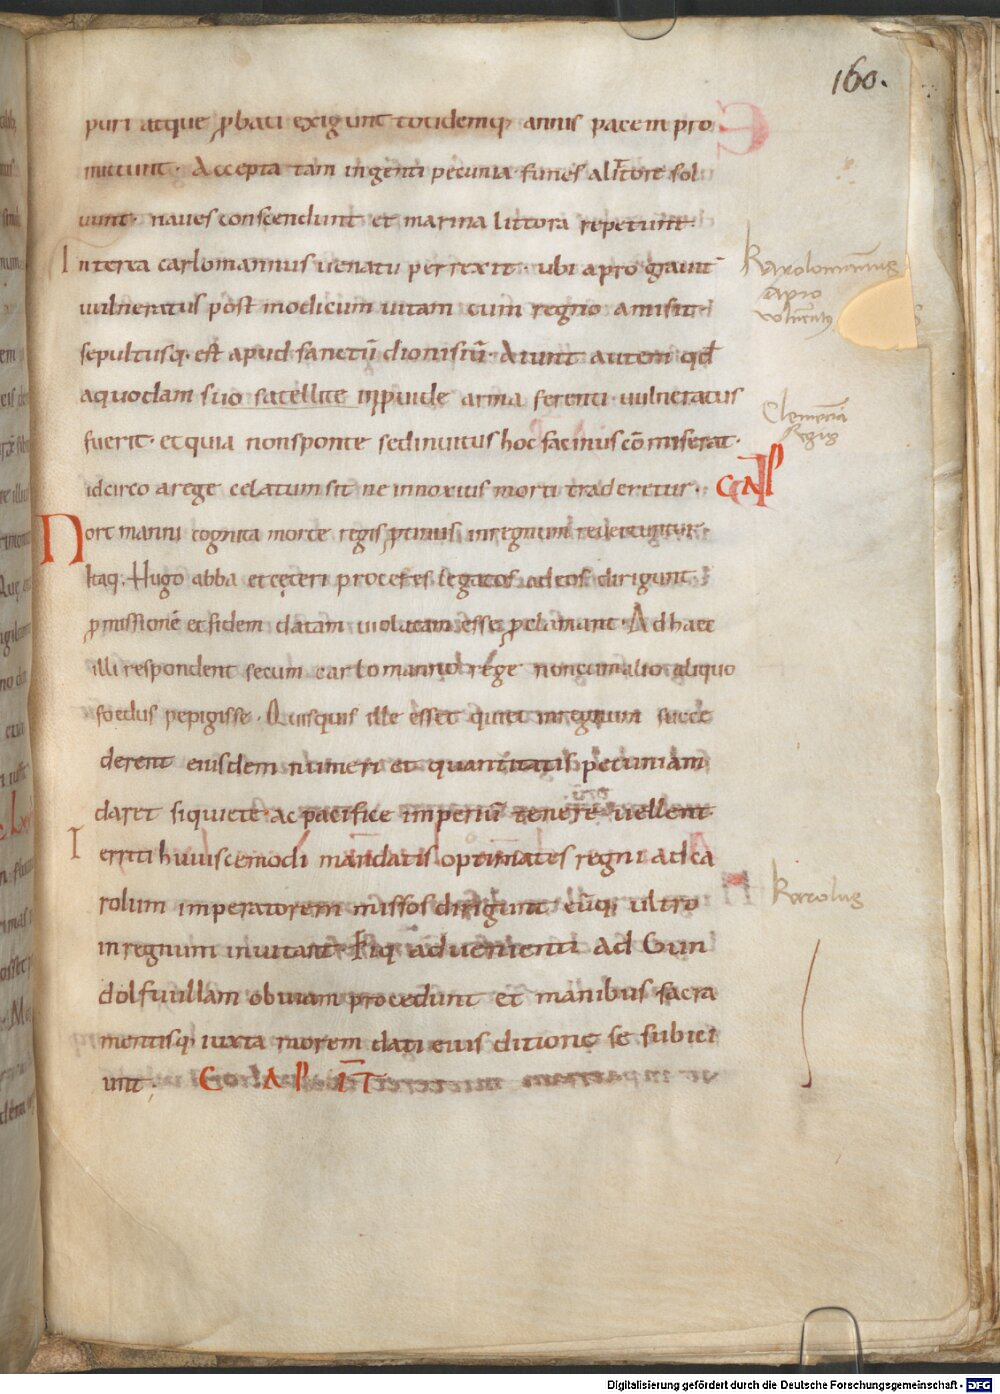 160.
puri atque ꝓbati exigunt totidemq; annis pacem pro
mittunt· Accepta tam ingenti pecunia funes al litore sol
uunt· naues conscendunt et marina littora repetunt·
Interea carlomannus uenatu perrexit· ubi apro grauit̄
uulneratus post modicum uitam cum regno amisit·
sepultusq· est apud sanctū dionisiū· Aiunt autem qd̄
aquodam suo satellite inprouide arma ferenti uulneratus
fuerit· et quia non sponte sed inuitus hoc facinus cō miserat·
idcirco arege celatum sit ne innoxius morti traderetur· CAP
Nortmanni cognita morte regis ꝓtinus inregnum
Itaq; Hugo abba et cęteri proceres legatos ad eos dirigunt·
ꝓmissionē et fidem datam uiolatam esse ꝓclamant· Ad haec
illi respondent secum carlomanno rege non cum alio aliquo
foedus pepigisse· Quisquis ille esset qui ei inregnum succe
derent eiusdem numeri et quantitatis pecuniam
daret si quiete ac pacifice imperiū tenere uellent·
Territi huiuscemodi mandatis optimates regni ad ca
rolum imperatorem missos dirigunt· eūq; ultro
inregnum inuitant· Eiq; aduenienti ad Gun
dolfuillam obuiam procedunt et manibus sacra
mentisq; iuxta morem dati eius ditione se subici
unt; CAP
Karolomannus
apro
uulneratus
Clementia
Regis
Karolus
Digitalisierung gefördert durch die Deutsche Forschungsgemeinschaft - DFG